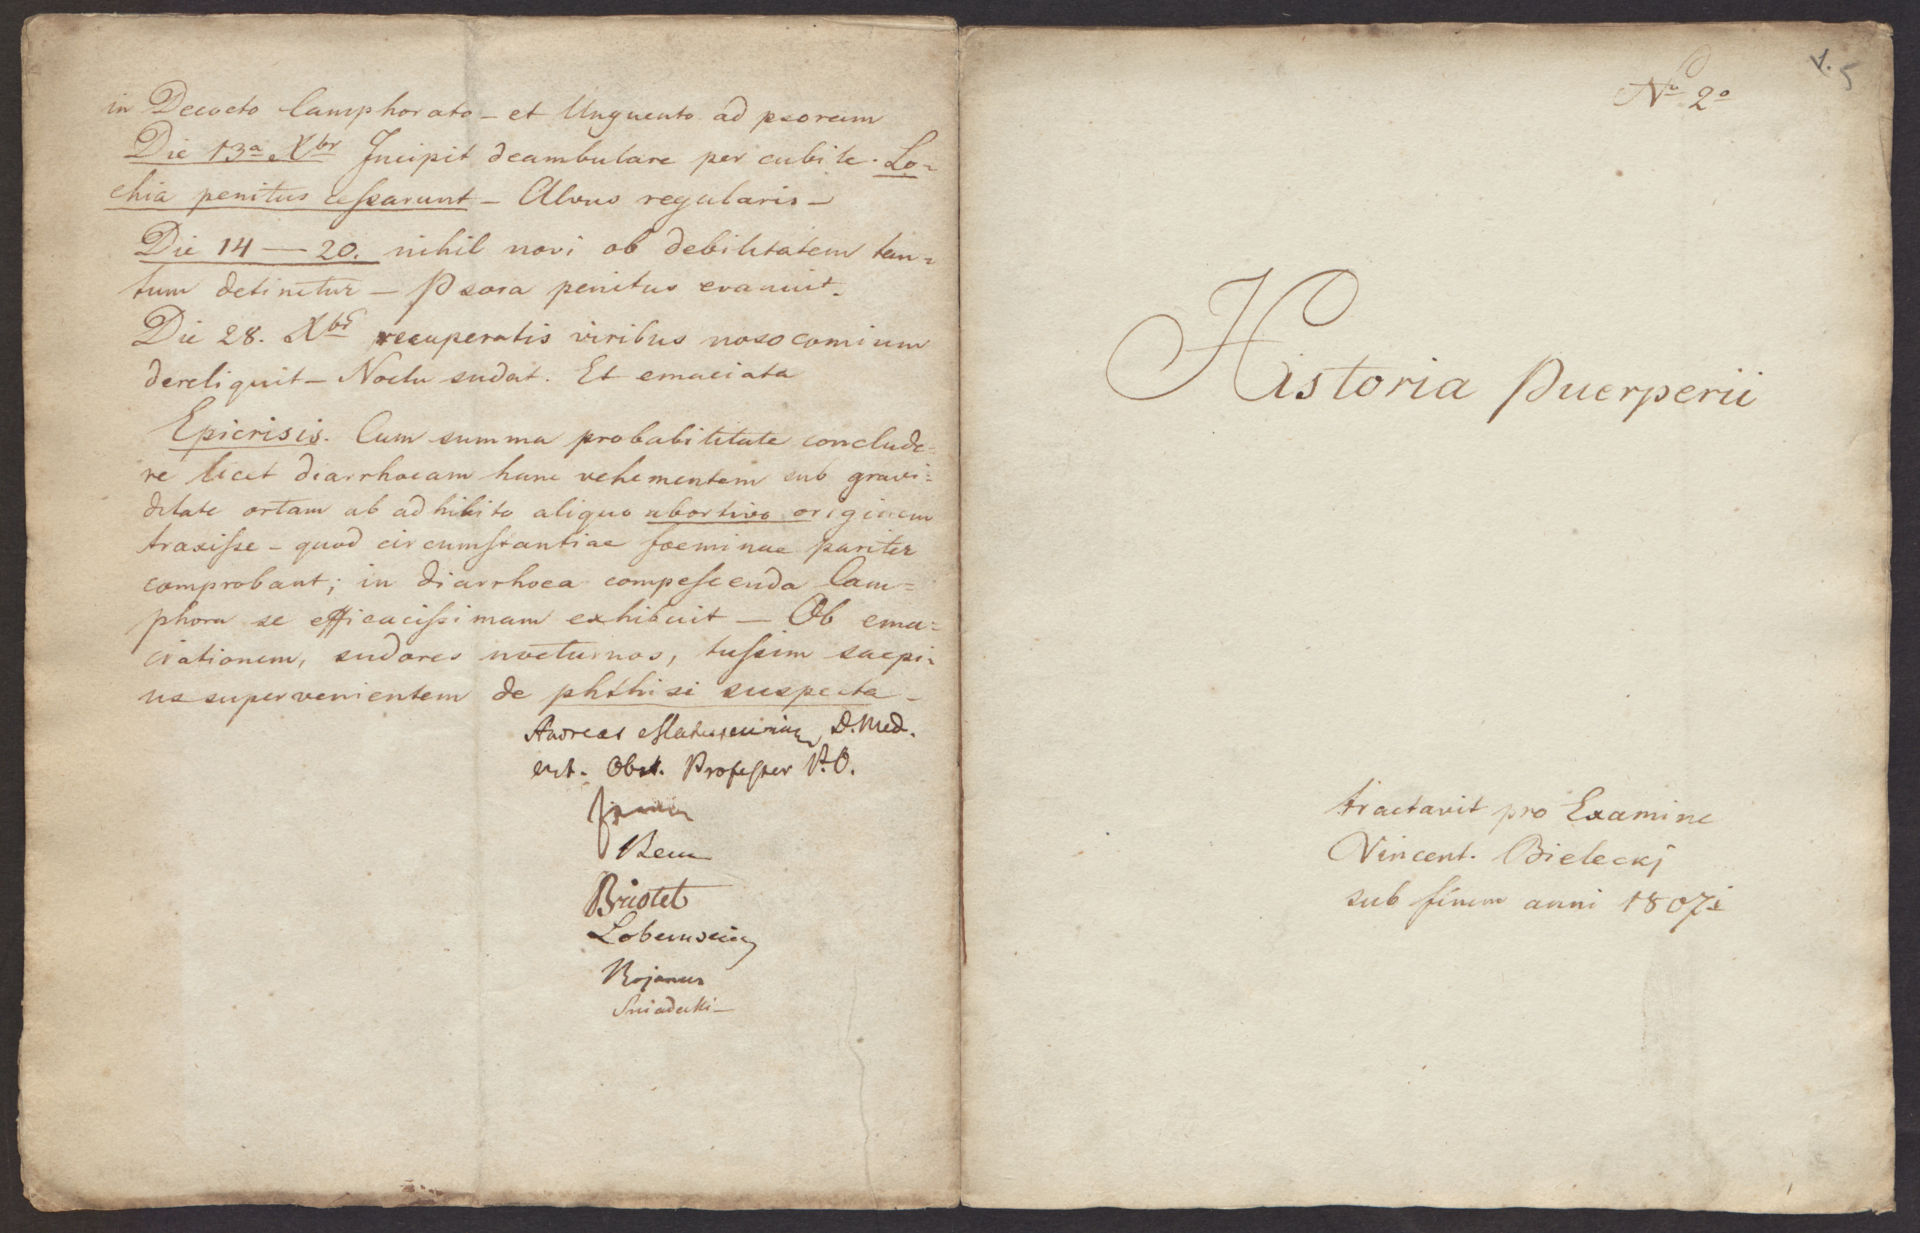 in Decocto Camphorato – et Unguento ad psoram
Die 13a Xbr Incipit deambulare per cubile. Lo=
chia penitus cessarunt – Alvus regularis –
Die 14 — 20. nihil novi ob debilitatem tan=
tum detinetur – Psora penitus evanuit.
Die 28. Xbr recuperatis viribus nosocomium
dereliquit – Noctu sudat. Et emaciata
Epicrisis. Cum summa probabilitate conclude=
re licet diarrhoeam hanc vehementem sub gravi=
ditate ortam ab adhibito aliquo abortivo originem
traxisse – quod circumstantiae foeminae pariter
comprobant; in diarrhoea compescenda Cam=
phora se efficacissimam exhibuit – Ob ema=
ciationem, sudores nocturnos, tussim saepi=
us supervenientem de phthisi suspecta –
Andreas D. Med.
Obst. Professor P.O.
Briotet
Lobenwein
Bojanus
Sniadecki –
1. 5
No 2o
Historia Puerperii
tractavit pro Examine
Vincent. Bielecki
sub finem anni 1807i